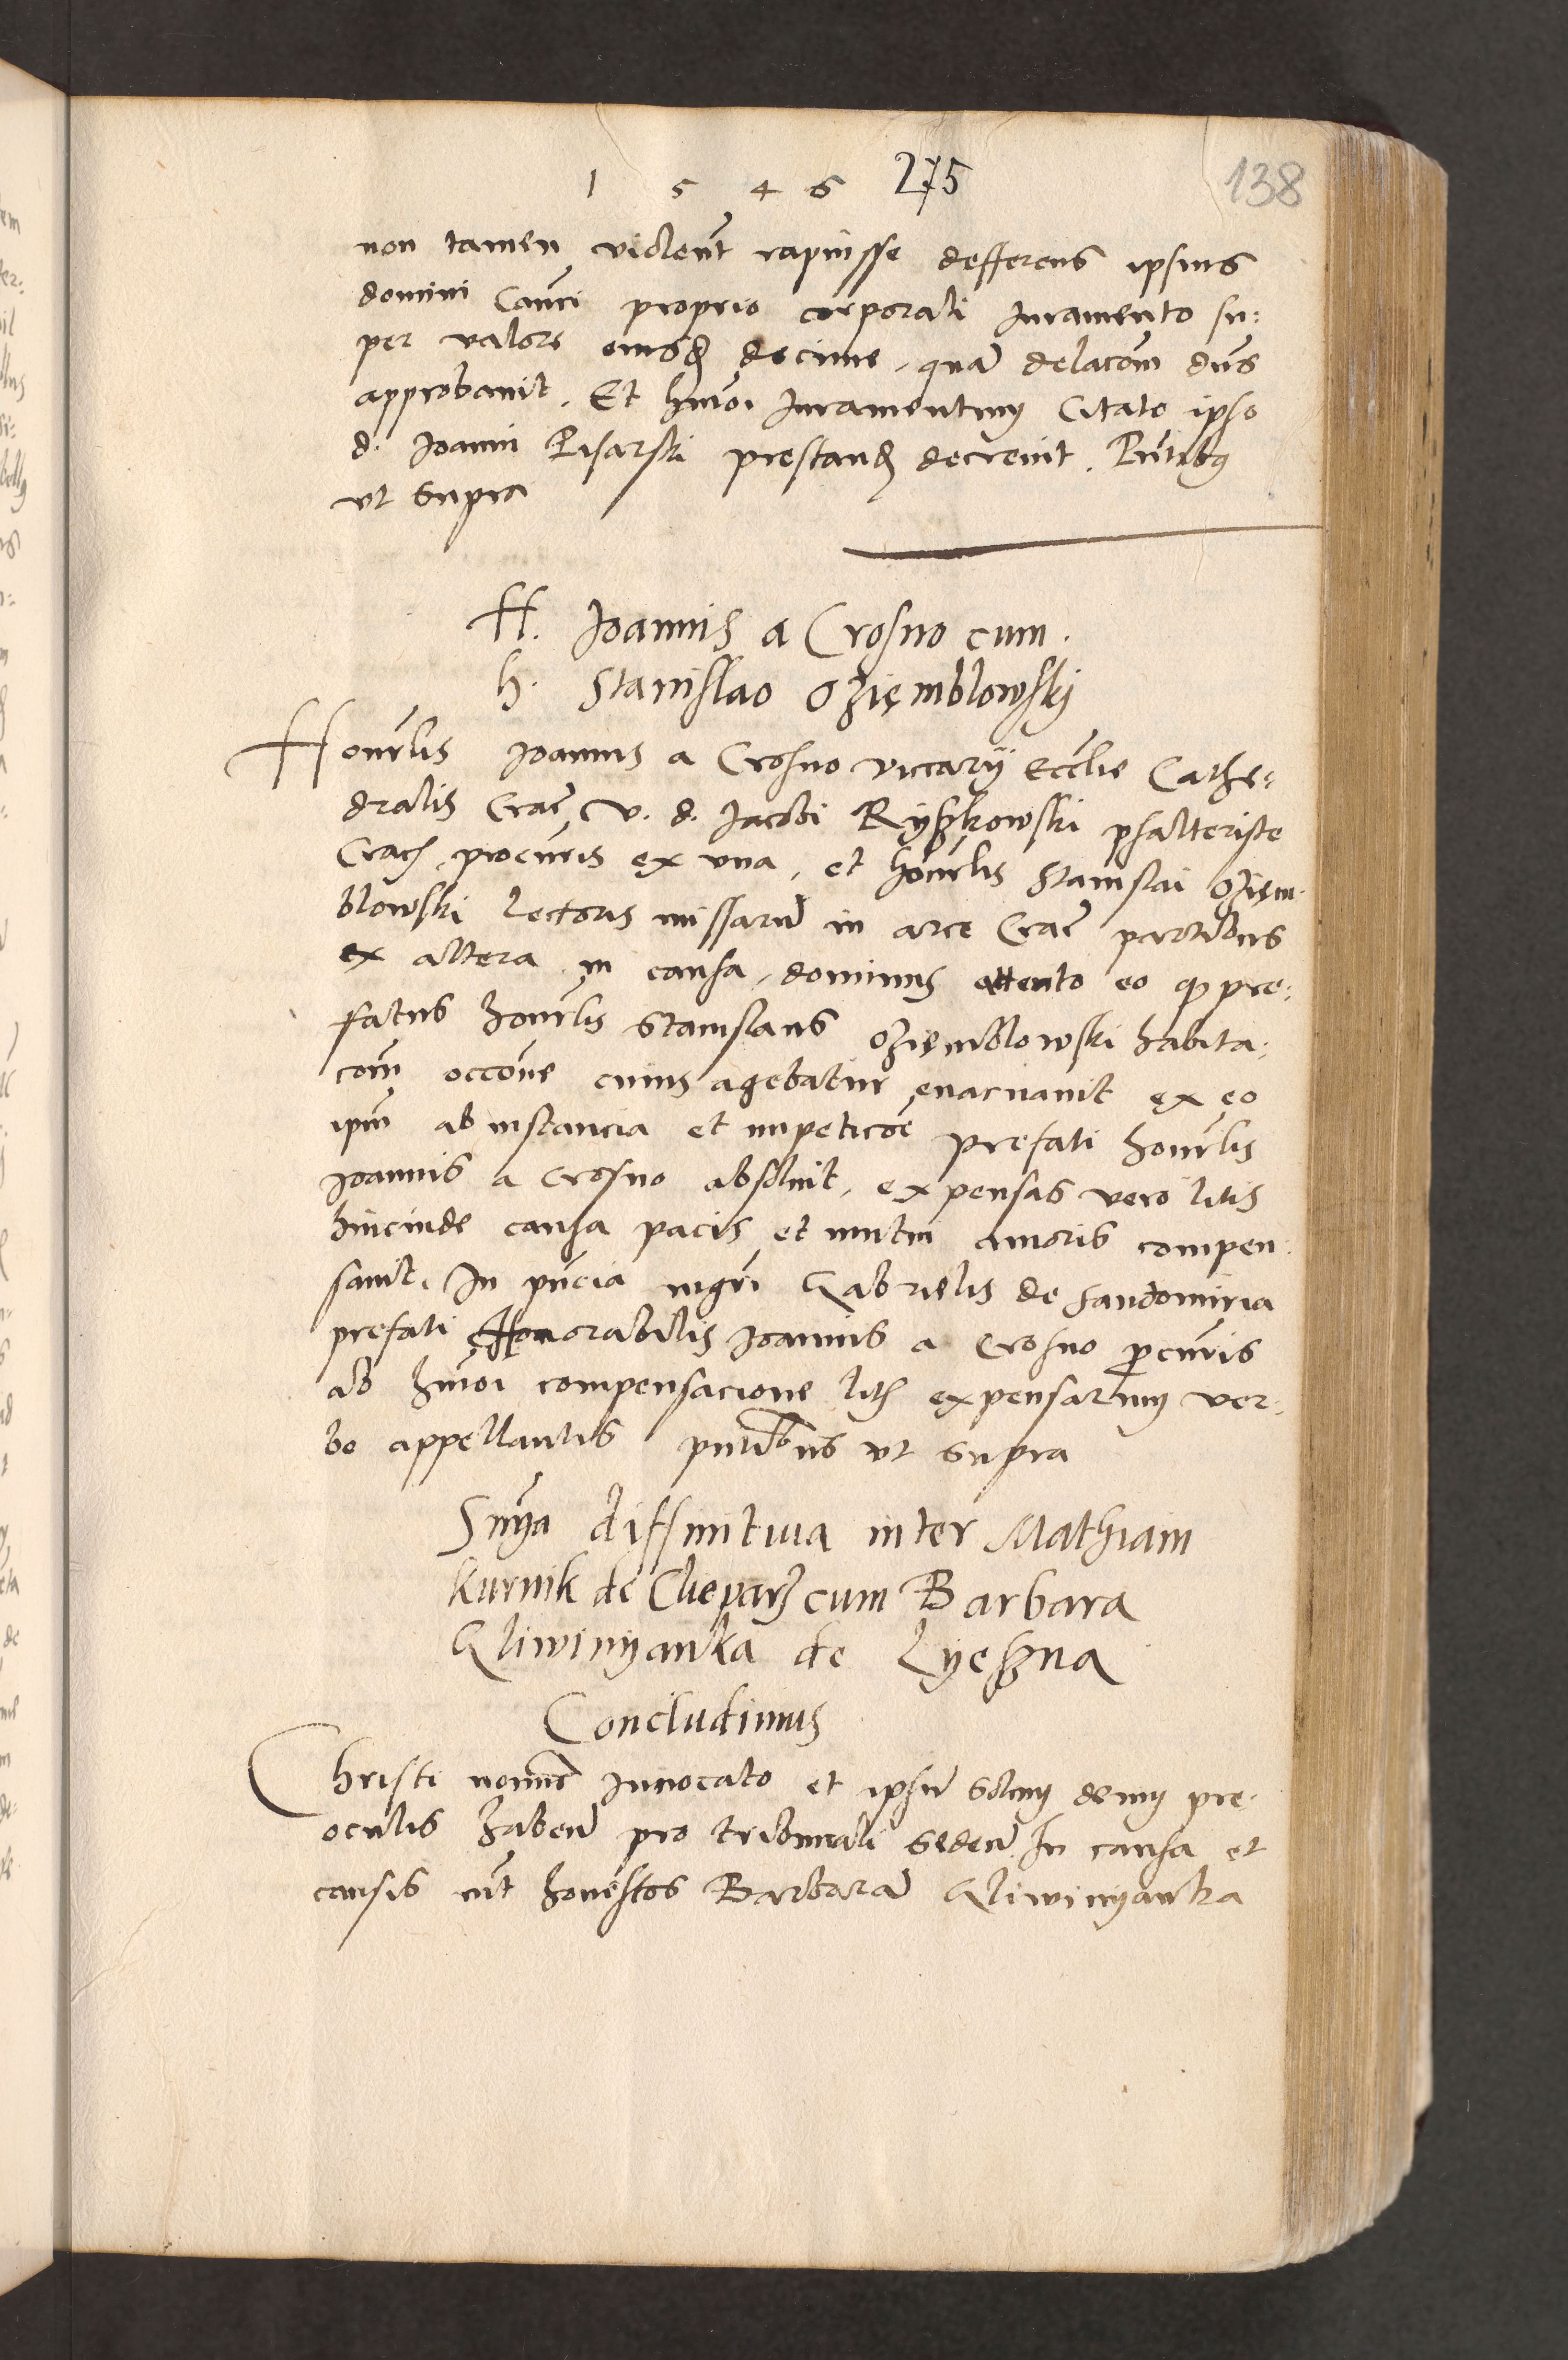 1 5 4 6 275 138
non tamen violent rapuisse defferens ipsius
domini Canci proprio corporali Iuramento su:
per valore eiusd decime, qua delacom dns
approbauit. Et hmoi Iuramentum Citato ipso
d. Joanni Pisarski prestand decreuit. Pntibus
vt supra
H. Joannis a Crosno cum.
h. Stanislao Oziemblowskj
Honrlis Joannis a Crosno viccarij Ecclie Cathe:
dralis Crac v. d. Jacobi Ryszkowski psalteriste
Crac procuris ex vna, et honrlis Stanislai Oziem-
blowski lectoris missaru in arce Crac partibus
ex altera in causa, dominus attento eo quod pre:
fatus honrlis Stanislaus Oziemblowski habita:
com occone cuius agebatur euacuauit ex eo
ipm ab instancia et impeticoe prefati honrlis
Joannis a Crosno absoluit, expensas vero litis
hincinde causa pacis et mutui amoris compen:
sauit. In pncia mgri Gabrielis de Sandomiria
prefati Honorabilis Joannis a Crosno procuris
ab hmoi compensacione litis expensarum ver:
bo appellantis pntibus vt supra
Snia diffinitiua inter Mathiam
Kurnik de Cleparz cum Barbara
Gliwinyanka de Lyeszna
Concludimus
Christi nomine Inuocato et ipsu solum deum pre
oculis haben pro tribunali seden In causa et
causis int honestos Barbara Gliwinyanka